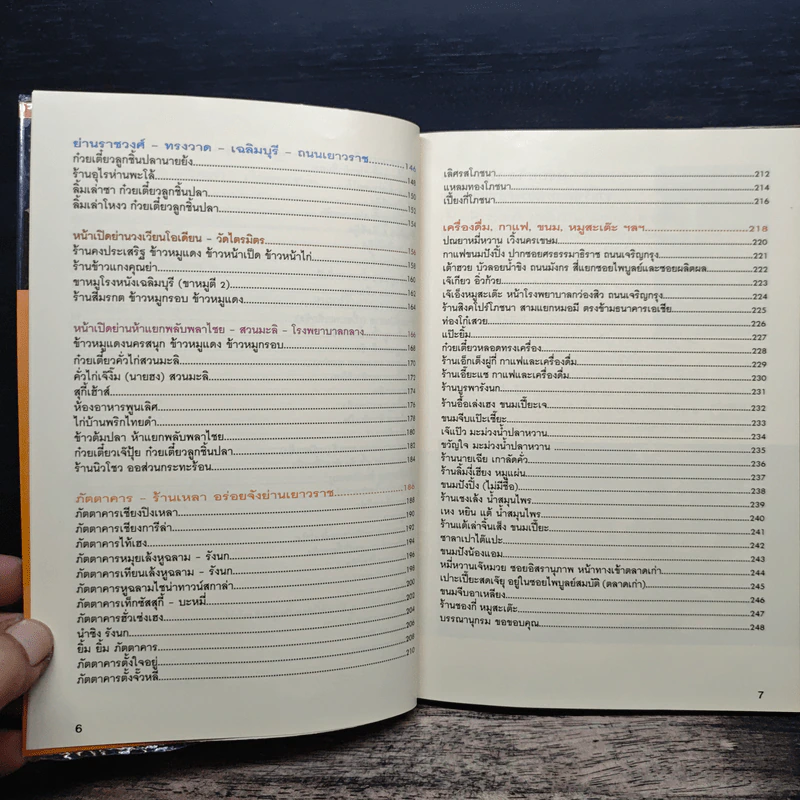 ย่านราชวงศ์ - ทรงวาด - เฉลิมบุรี - ถนนเยาวราช 146
ก๋วยเตี๋ยวลูกชิ้นปลานายย้ง
ร้านอุไรห่านพะโล้ 148
ลิ้มเล่าซา ก๋วยเตี๋ยวลูกชิ้นปลา 150
ลิ้มเล่าโหงว ก๋วยเตี๋ยวลูกชิ้นปลา 152
154
หน้าเปิดย่านวงเวียนโอเดียน - วัดไตรมิตร 156
ร้านคงประเสริฐ ข้าวหมูแดง ข้าวหน้าเป็ด ข้าวหน้าไก่ 158
ร้านข้าวแกงคุณย่า 160
ขาหมูโรงหนังเฉลิมบุรี (ขาหมูตี๋ 2) 162
ร้านสีมรกต ข้าวหมูกรอบ ข้าวหมูแดง 164
หน้าเปิดย่านห้าแยกพลับพลาไชย - สวนมะลิ - โรงพยาบาลกลาง 166
ข้าวหมูแดงนครสนุก ข้าวหมูแดง ข้าวหมูกรอบ 168
ก๋วยเตี๋ยวคั่วไก่สวนมะลิ 170
คั่วไก่เจ๊งิ้ม (นายฮง) สวนมะลิ 172
สุกี้เฮ้าส์ 174
ห้องอาหารพูนเลิศ 176
ไก่บ้านพริกไทยดำ 178
ข้าวต้มปลา ห้าแยกพลับพลาไชย 180
ก๋วยเตี๋ยวเจ๊ปุ้ย ก๋วยเตี๋ยวลูกชิ้นปลา 182
ร้านนิวโซว ออส่วนกระทะร้อน 184
ภัตตาคาร - ร้านเหลา อร่อยจังย่านเยาวราช 186
ภัตตาคารเซียงปิงเหลา 188
ภัตตาคารเซียงการีล่า 190
ภัตตาคารไท้เฮง 192
ภัตตาคารหมุยเล้งหูฉลาม - รังนก 194
ภัตตาคารเทียนเล้งหูฉลาม - รังนก 196
ภัตตาคารหูฉลามไชน่าทาวน์สกาล่า 198
ภัตตาคารเท็กซัสสุกี้ - บะหมี่ 200
ภัตตาคารฮั่วเซ่งเฮง 202
นำซิง รังนก 204
ยิ้ม ยิ้ม ภัตตาคาร 206
ภัตตาคารตั้งใจอยู่ 208
ภัตตาคารตั้งจั๊วหลี 210
6
เลิศรสโภชนา 212
แหลมทองโภชนา 214
เปี้ยงกี่โภชนา 216
เครื่องดื่ม, กาแฟ, ขนม, หมูสะเต๊ะ ฯลฯ 218
ปณยาหมี่หวาน เวิ้งนครเขษม 220
กาแฟขนมปังปิ้ง ปากซอยศรธรรมาธิราช ถนนเจริญกรุง 221
เต้าฮวย บัวลอยน้ำขิง ถนนมังกร สี่แยกซอยไพบูลย์และซอยผลิตผล 222
เจ๊เกียว อิ่วก้วย 223
เจ๊เอ็งหมูสะเต๊ะ หน้าโรงพยาบาลกว๋องสิว ถนนเจริญกรุง 224
ร้านสิงคโปร์โภชนา สามแยกหมอมี ตรงข้ามธนาคารเอเชีย 225
ท่องโก๋สวย 226
แป๊ะยิ้ม 227
ก๋วยเตี๋ยวหลอดทรงเครื่อง 228
ร้านเอ็กเต็งผู่กี่ กาแฟและเครื่องดื่ม 229
ร้านเอี๊ยะแซ กาแฟและเครื่องดื่ม 230
ร้านบูรพารังนก 231
ร้านอื้อเล่งเฮง ขนมเปี๊ยะเจ 232
ขนมจีบแป๊ะเซี๊ยะ 233
เจ๊แป๋ว มะม่วงน้ำปลาหวาน 234
ขวัญใจ มะม่วงน้ำปลาหวาน 235
ร้านนายเฉีย เกาลัดคั่ว 236
ร้านลิ้มงี่เฮียง หมูแผ่น 237
ขนมปังปิ้ง (ไม่มีชื่อ) 238
ร้านเซงเล้ง น้ำสมุนไพร 239
เหง หยิน แต้ น้ำสมุนไพร 240
ร้านแต้เล่าจิ้นเส็ง ขนมเปี๊ยะ 241
ซาลาเปาไต้แปะ 242
ขนมปังน้องแอม 243
หมี่หวานเจ๊หมวย ซอยอิสรานุภาพ หน้าทางเข้าตลาดเก่า 244
เปาะเปี๊ยะสดเจ๊ยุ อยู่ในซอยไพบูลย์สมบัติ (ตลาดเก่า) 245
ขนมจีบอาเหลียง 246
ร้านซองกี่ หมูสะเต๊ะ 247
บรรณานุกรม ขอขอบคุณ 248
7